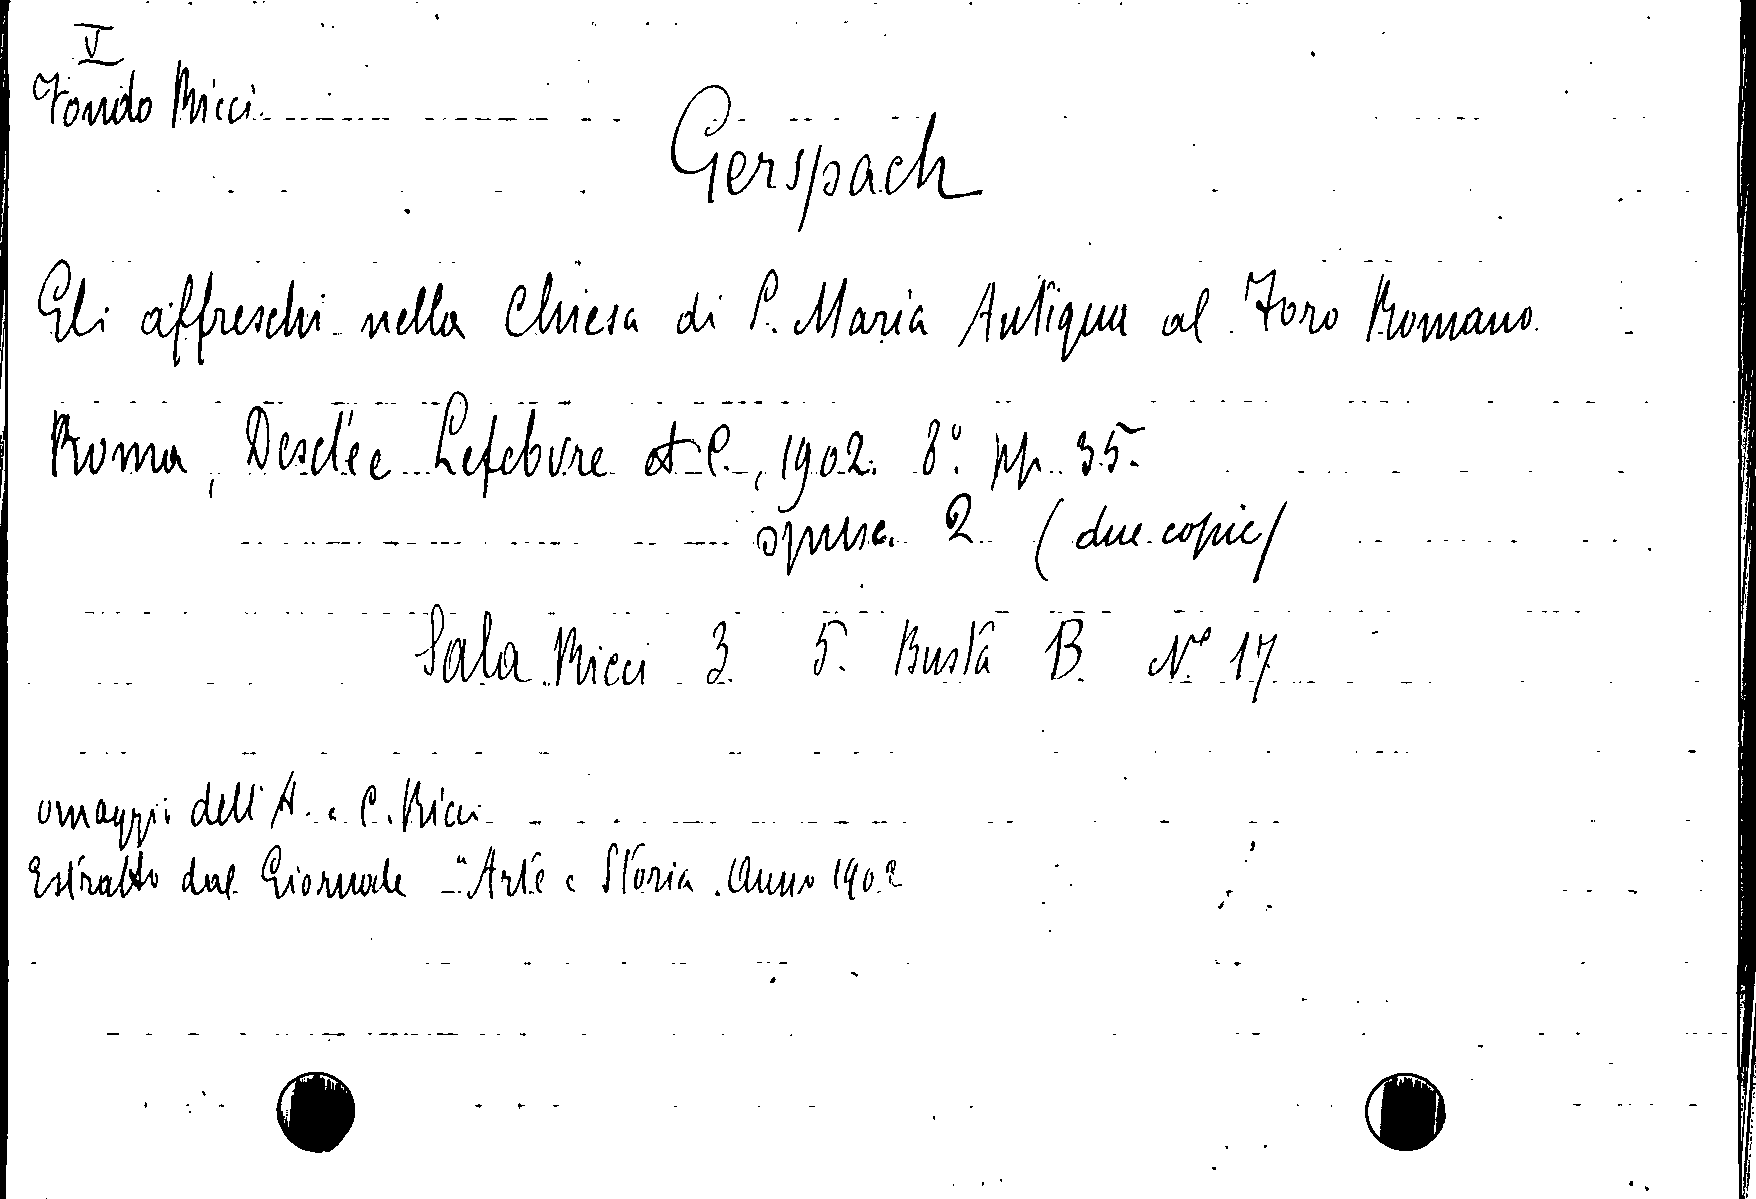 V
Fondo Ricci
Gerspach
Gli affreschi nella Chiesa di S. Maria Antiqua al Foro Romano
Roma, Desclée Lefebvre et C., 1902. 8° pp. 35.
opusc. 2 (due copie)
Sala Ricci 3. 5. Busta B. N° 17
omaggio dell'A. a C. Ricci
Estratto dal Giornale "Arte e Storia. Anno 1902